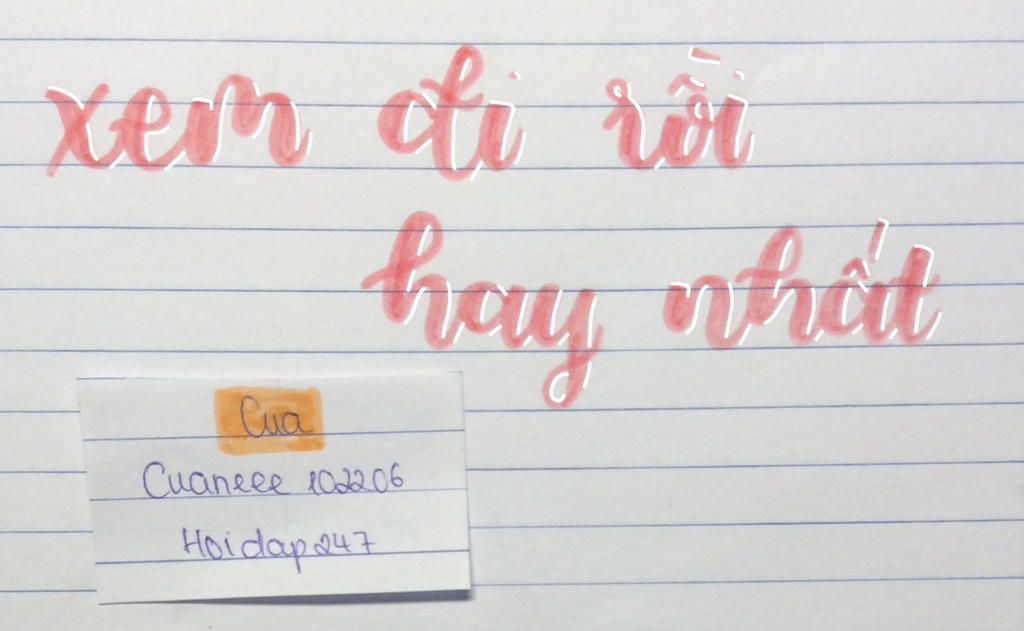 xem đi rồi
hay nhất
Cua
Cuaneee 102206
Hoidap247